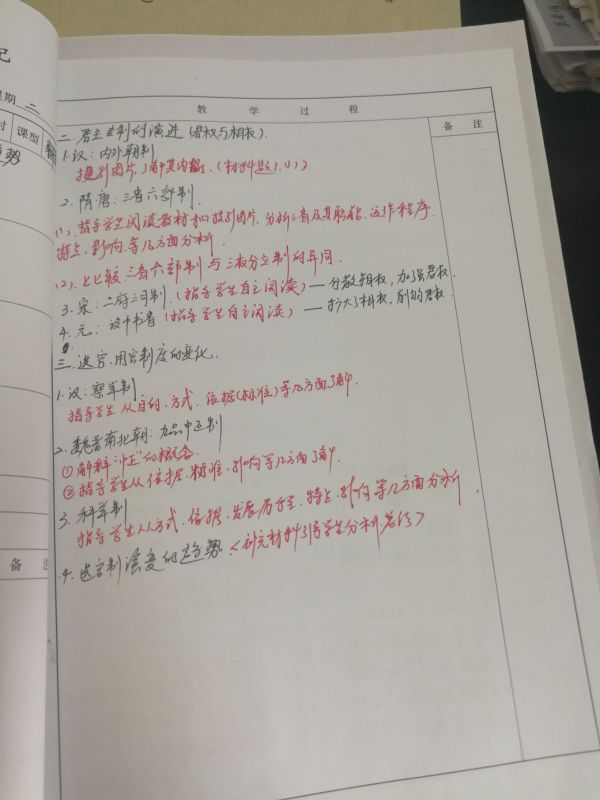 记
星期 二
时 课型
趋势
备 注
教 学 过 程
备 注
二. 君主专制的演进 (君权与相权).
1. 汉: 内外朝制
投影图片, 了解其内容. (材料题1. (1))
2. 隋唐: 三省六部制.
(1). 指导学生阅读教材和投影图片, 分析三省及其职能. 运作程序
特点. 影响. 等几方面分析.
(2). 比较三省六部制与三权分立制的异同.
3. 宋: 二府三司制. (指导学生自主阅读) — 分散相权, 加强君权.
4. 元: 设中书省 (指导学生自主阅读) — 扩大了相权, 削弱君权.
三. 选官. 用官制度的变化.
1. 汉: 察举制.
指导学生从目的. 方式. 依据(标准)等几方面了解.
2. 魏晋南北朝: 九品中正制
① 解释“中正”的概念
② 指导学生从依据. 标准. 影响等几方面了解.
3. 科举制
指导学生从方式. 依据. 发展历程. 特点. 影响等几方面分析.
4. 选官制演变的趋势. <补充材料引导学生分析总结>